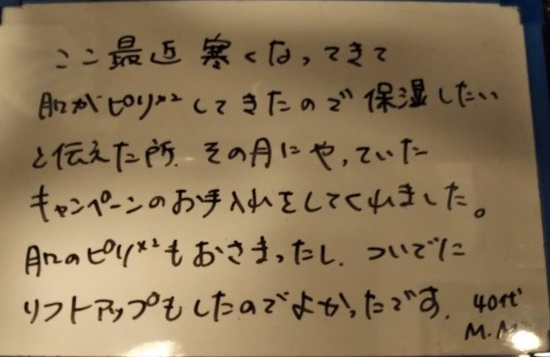 ここ最近寒くなってきて
肌がピリ×2してきたので保湿したい
と伝えた所、その月にやっていた
キャンペーンのお手入れをしてくれました。
肌のピリ×2もおさまったし、ついでに
リフトアップもしたのでよかったです。40代
M.M